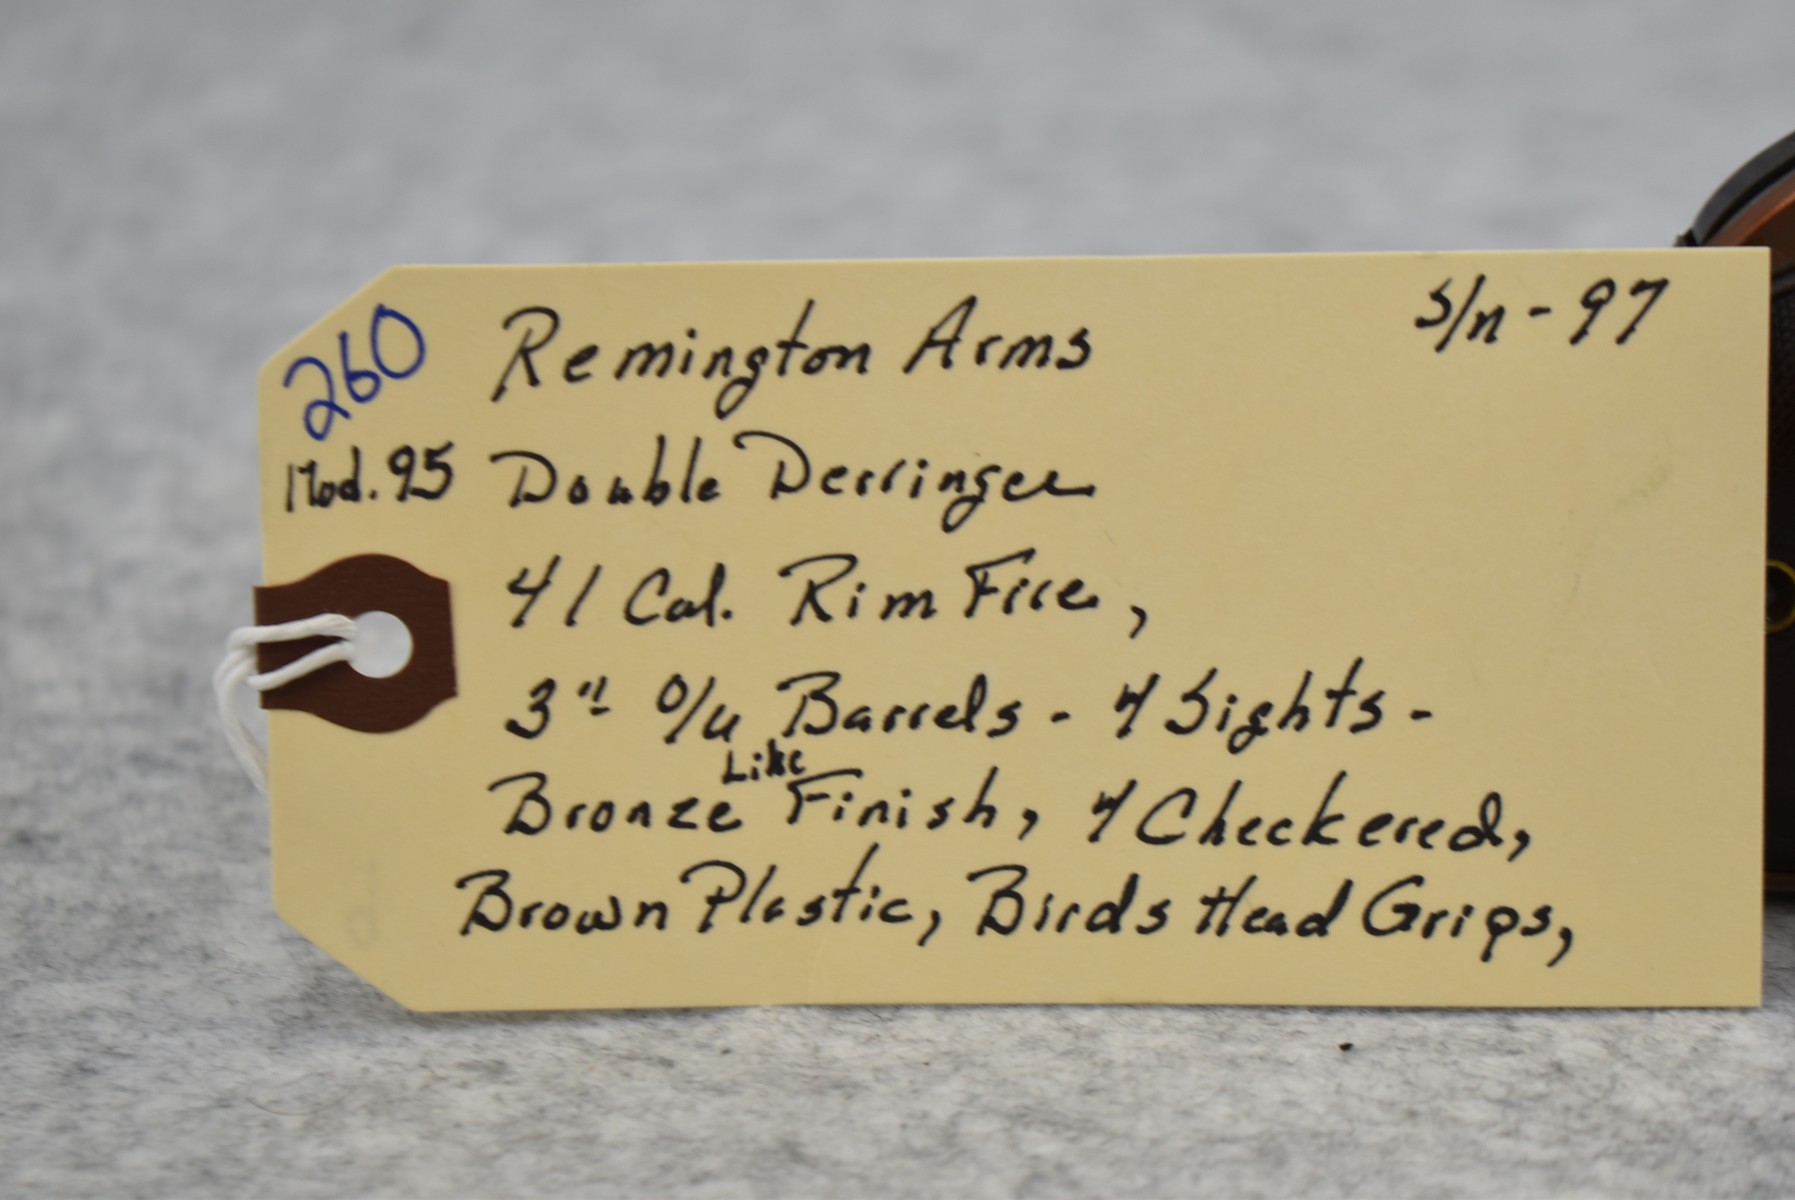 260 Remington Arms S/n - 97
Mod. 95 Double Derringer
41 Cal. Rim Fire,
3" O/u Barrels - + Sights -
Bronze Like Finish, + Checkered,
Brown Plastic, Birds Head Grips,